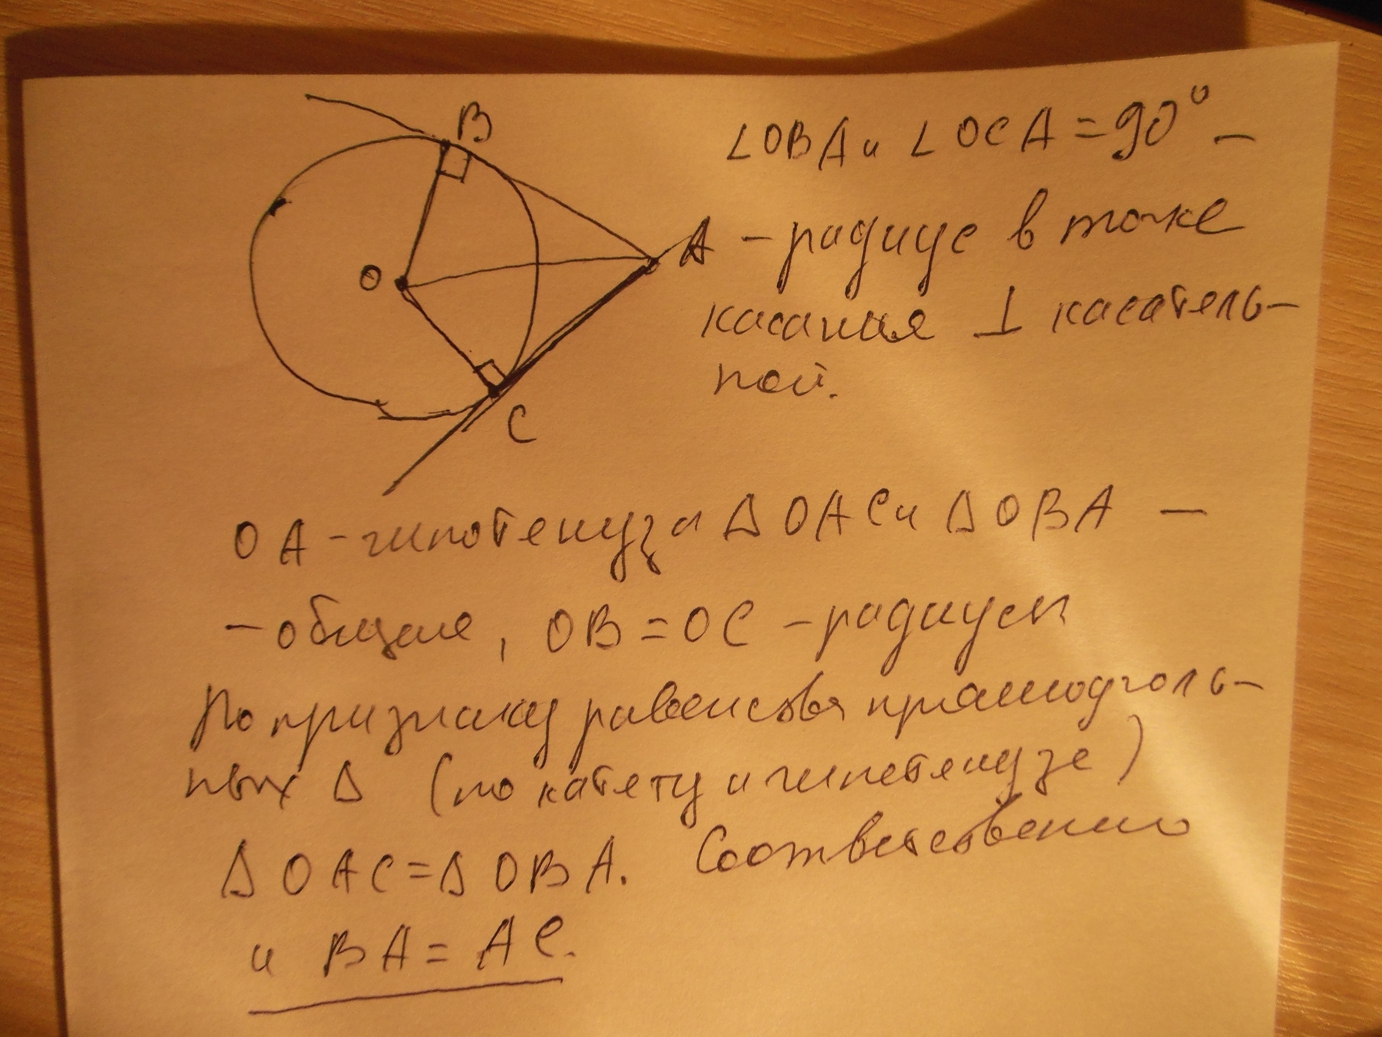 B
O
A
C
∠OBA и ∠OCA = 90° –
– радиус в точке
касания ⊥ касатель–
ной.
OA – гипотенуза Δ OAC и Δ OBA –
– общая, OB = OC – радиусы
По признаку равенства прямоуголь–
ных Δ (по катету и гипотенузе)
Δ OAC = Δ OBA. Соответственно
и BA = AC.